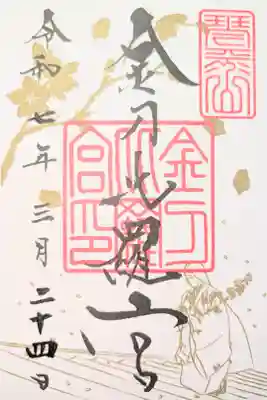 琴平山
金刀比羅宮
金刀
比羅
宮印
令和七年三月二十四日